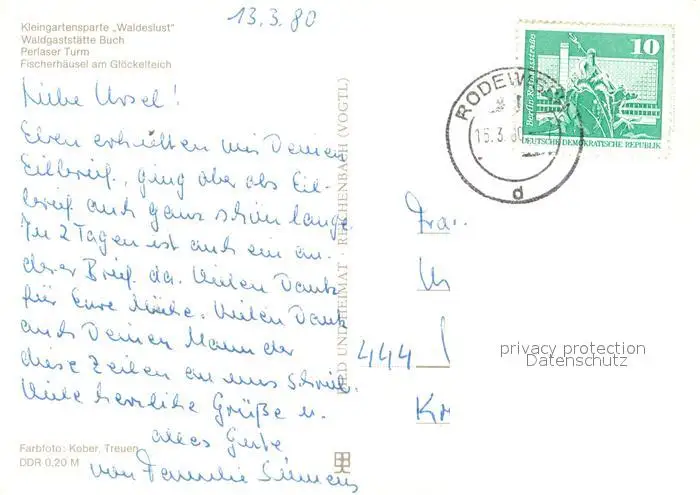 13.3.80
Kleingartensparte „Waldeslust"
Waldgaststätte Buch
Perlaser Turm
Fischerhäusel am Glöckelteich
Liebe Ursel!
Eben erhielten wir Deinen
Eilbrief, ging aber als Eil-
brief auch ganz schön lange.
In 2 Tagen ist auch ein an-
derer Brief da. Vielen Dank
für Eure Mühe. Vielen Dank
auch Deinem Mann der
diese Zeilen an uns schrieb.
Viele herzliche Grüße u.
alles Gute
von Familie
Farbfoto: Kober, Treuen
DDR 0,20 M
BILD UND HEIMAT · REICHENBACH (VOGTL)
10
DEUTSCHE DEMOKRATISCHE REPUBLIK
RODEWISCH
13.3.80
d
444
Kr
privacy protection
Datenschutz